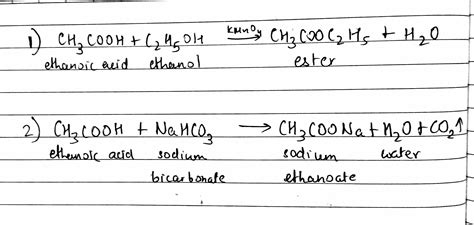 1) CH₃COOH + C₂H₅OH KMnO₄→ CH₃COOC₂H₅ + H₂O
ethanoic acid ethanol ester
2) CH₃COOH + NaHCO₃ → CH₃COONa + H₂O + CO₂↑
ethanoic acid sodium sodium water
bicarbonate ethanoate